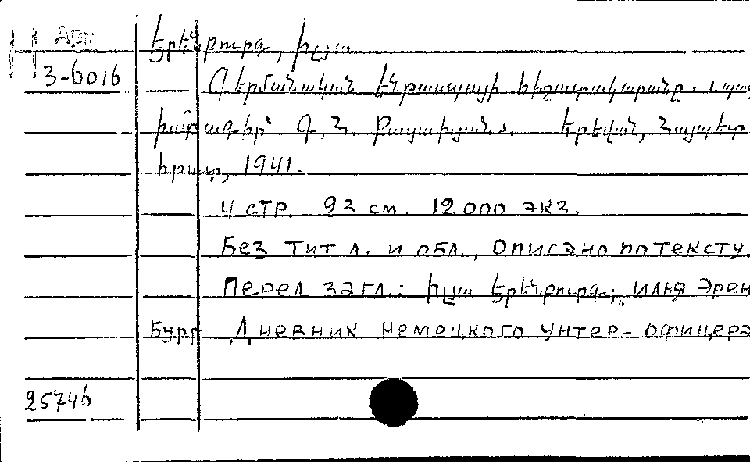 Арм
3-6016
Էրենբուրգ, Իլյա
Գերմանական ենթասպայի հիշատակարանը.
խմբագիր՝ Գ. Ն. Երևան, Հայպետ
հրատ, 1941.
4 стр. 22 см. 12.000 экз.
Без тит л. и обл., описано по тексту.
Перед загл.: Իլյա Էրենբուրգ; Илья Эрен
бург Дневник немецкого унтер-офицера
25746